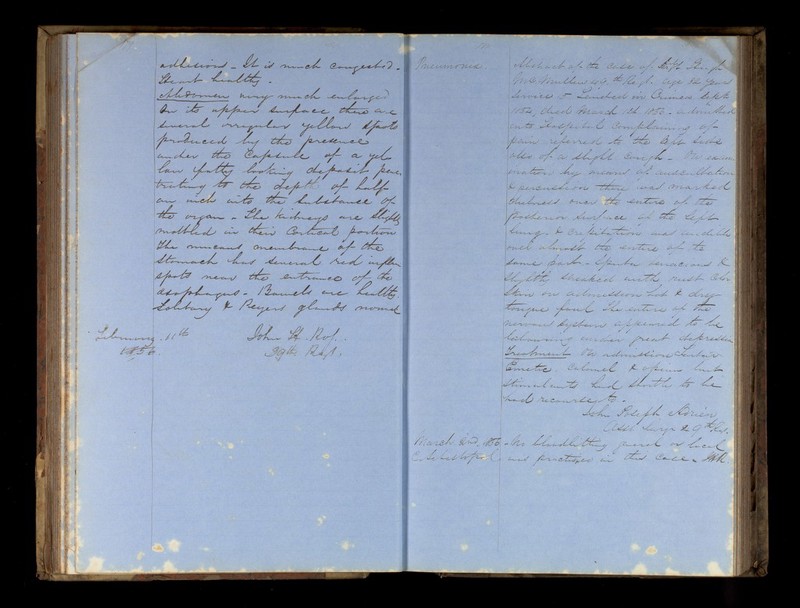 adhesions - It is much congested -
Heart healthy -
Abdomen very much enlarged
On its upper surface there are
several irregular yellow spots
produced by the presence
under the capsule of a yel
low fatty looking deposit pene
trating to the depth of half
an inch into the substance of
the organ - The kidneys are slightly
mottled in their cortical portion
The mucous membrane of the
stomach has several red
spots near the entrance of the
oesophagus - Bowels are healthy
Solitary & Peyers glands normal
February 11th
1856
John H.
39th Regt.
Pneumonia
Abstract of the case of
Regt. age
service & Landed in Crimea Sept
died March 1st
into Hospital complaining of
pain referred to the left side
also of a slight cough - On exam
ination by means of auscultation
& percussion there was marked
dulness over the entire of the
posterior surface of the left
lung & crepitation was audible
over almost the entire of the
same part - Sputa &
slightly streaked with rust color
skin on admission hot & dry
tongue foul the entire of the
nervous system appeared to be
labouring under great depression
Treatment On admission
Emetic, Calomel & opium but
stimulants had shortly to be
had recourse to -
John Joseph Adrien
Asst Surgn
March 2nd No bloodletting general or local
was practised in this case -